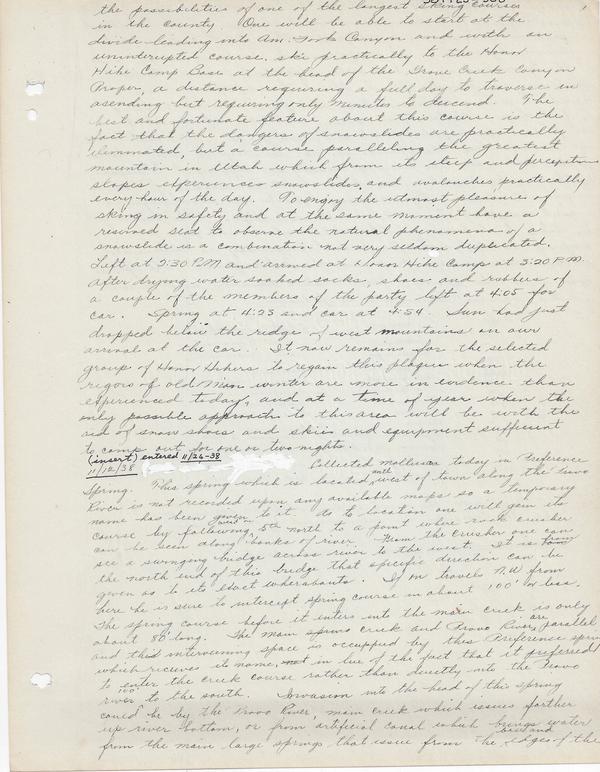 the possibilities of one of the longest skiing courses
in the county One will be able to start at the
divide leading into Am. Fork Canyon and with an
uninterrupted course ski practically to the Honor
Hike Camp Base at the head of the Grove Creek Canyon
Proper, a distance requiring a full day to traverse in
asending but requiring only minutes to descend. The
best and fortunate feature about this course is the
fact that the dangers of snowslides are practically
eliminated, but a course paralleling the greatest
mountain in Utah which from its steep and
slopes experiences snowslides, and avalanches practically
every hour of the day. To enjoy the utmost pleasure of
skiing in safety and at the same moment have a
reserved seat to observe the natural phenomena of a
snowslide is a combination not very seldom duplicated.
Left at 2:30 P.M. and arrived at Honor Hike Camp at 3:20 P.M.
After drying water soaked socks, shoes and rubbers of
a couple of the members of the party left at 4:05 for
car. Spring at 4:23 and car at 4:54. Sun had just
dropped below the ridge of west mountains on our
arrival at the car. It now remains for the selected
group of Honor Hikers to regain this place when the
rigors of old Man winter are more in evidence than
experienced today, and at a time of year when the
only possible approach to this area will be with the
aid of snow shoes and skiis and equipment sufficient
to camp out for one or two nights.
(insert) entered 11/26-38
11/12/38 Collected mollusca today in Preference
Spring. This spring which is located west of town along the Provo
River is not recorded upon any available maps so a temporary
name has been given to it. So to location one will gem its
course by following 5th north to a point where rock crusher
can be seen along banks of river. From the crusher one can
see a swinging bridge across river to the west. It is from
the north end of this bridge that specific direction can be
given as to its exact whereabouts. If on travels N.W from
here he is sure to intercept spring course in about 100' or less.
The spring course before it enters into the main creek is only
about 80' long. The main spring creek and Provo River are parallel
and this intervening space is occupied by this Preference spring
which recieves its name, not in lue of the fact that it preferred
to enter the creek course rather than directly into the Provo
river 100' to the south. Invasion into the head of this spring
could be by the Provo River, main creek which issues farther
up river bottom, or from artificial canal which brings water
from the main large springs that issue from the base and edges of the